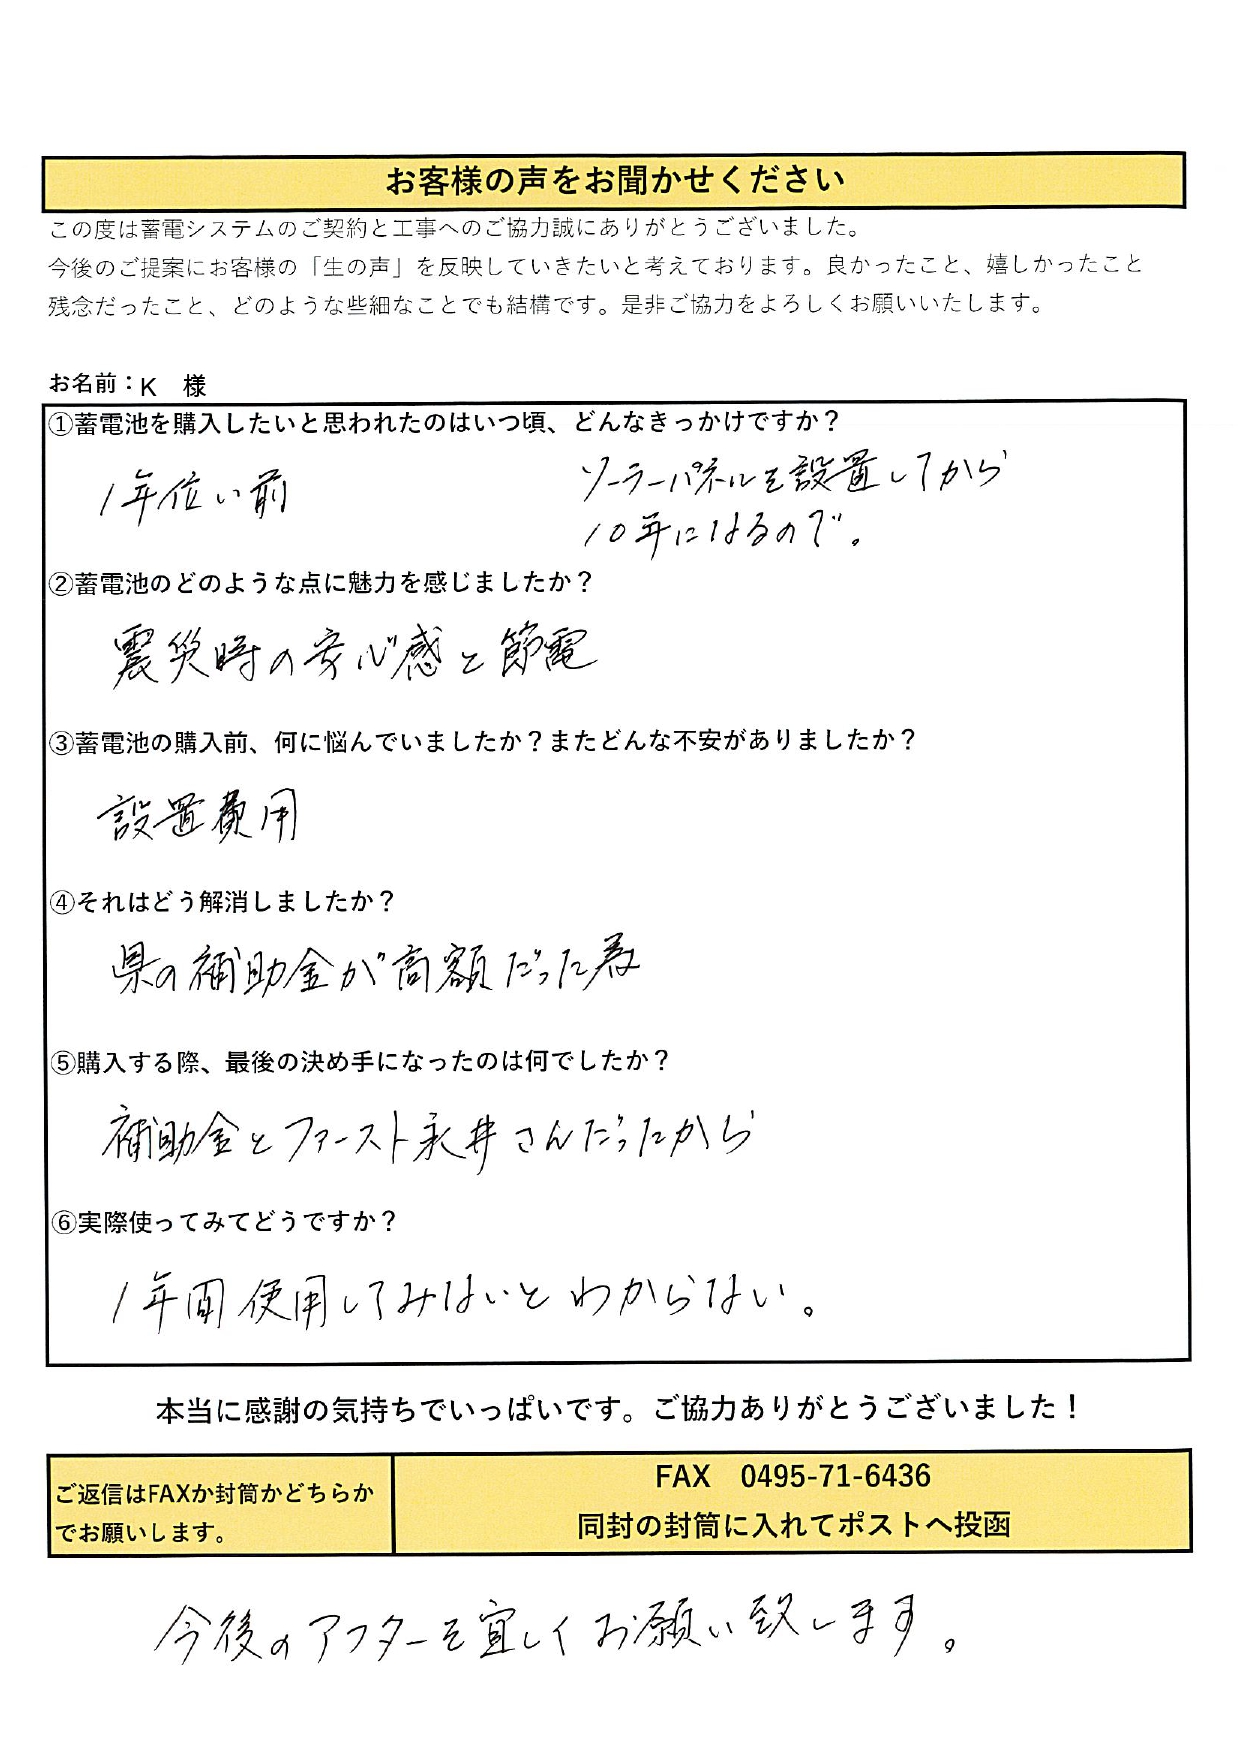 お客様の声をお聞かせください
この度は蓄電システムのご契約と工事へのご協力誠にありがとうございました。
今後のご提案にお客様の「生の声」を反映していきたいと考えております。良かったこと、嬉しかったこと
残念だったこと、どのような些細なことでも結構です。是非ご協力をよろしくお願いいたします。
お名前：K　様
①蓄電池を購入したいと思われたのはいつ頃、どんなきっかけですか？
1年位い前　ソーラーパネルを設置してから
10年になるので。
②蓄電池のどのような点に魅力を感じましたか？
震災時の安心感と節電
③蓄電池の購入前、何に悩んでいましたか？またどんな不安がありましたか？
設置費用
④それはどう解消しましたか？
県の補助金が高額だった為
⑤購入する際、最後の決め手になったのは何でしたか？
補助金とファースト永井さんだったから
⑥実際使ってみてどうですか？
1年間使用してみないとわからない。
本当に感謝の気持ちでいっぱいです。ご協力ありがとうございました！
ご返信はFAXか封筒かどちらか
でお願いします。
FAX　0495-71-6436
同封の封筒に入れてポストへ投函
今後のアフターを宜しくお願い致します。